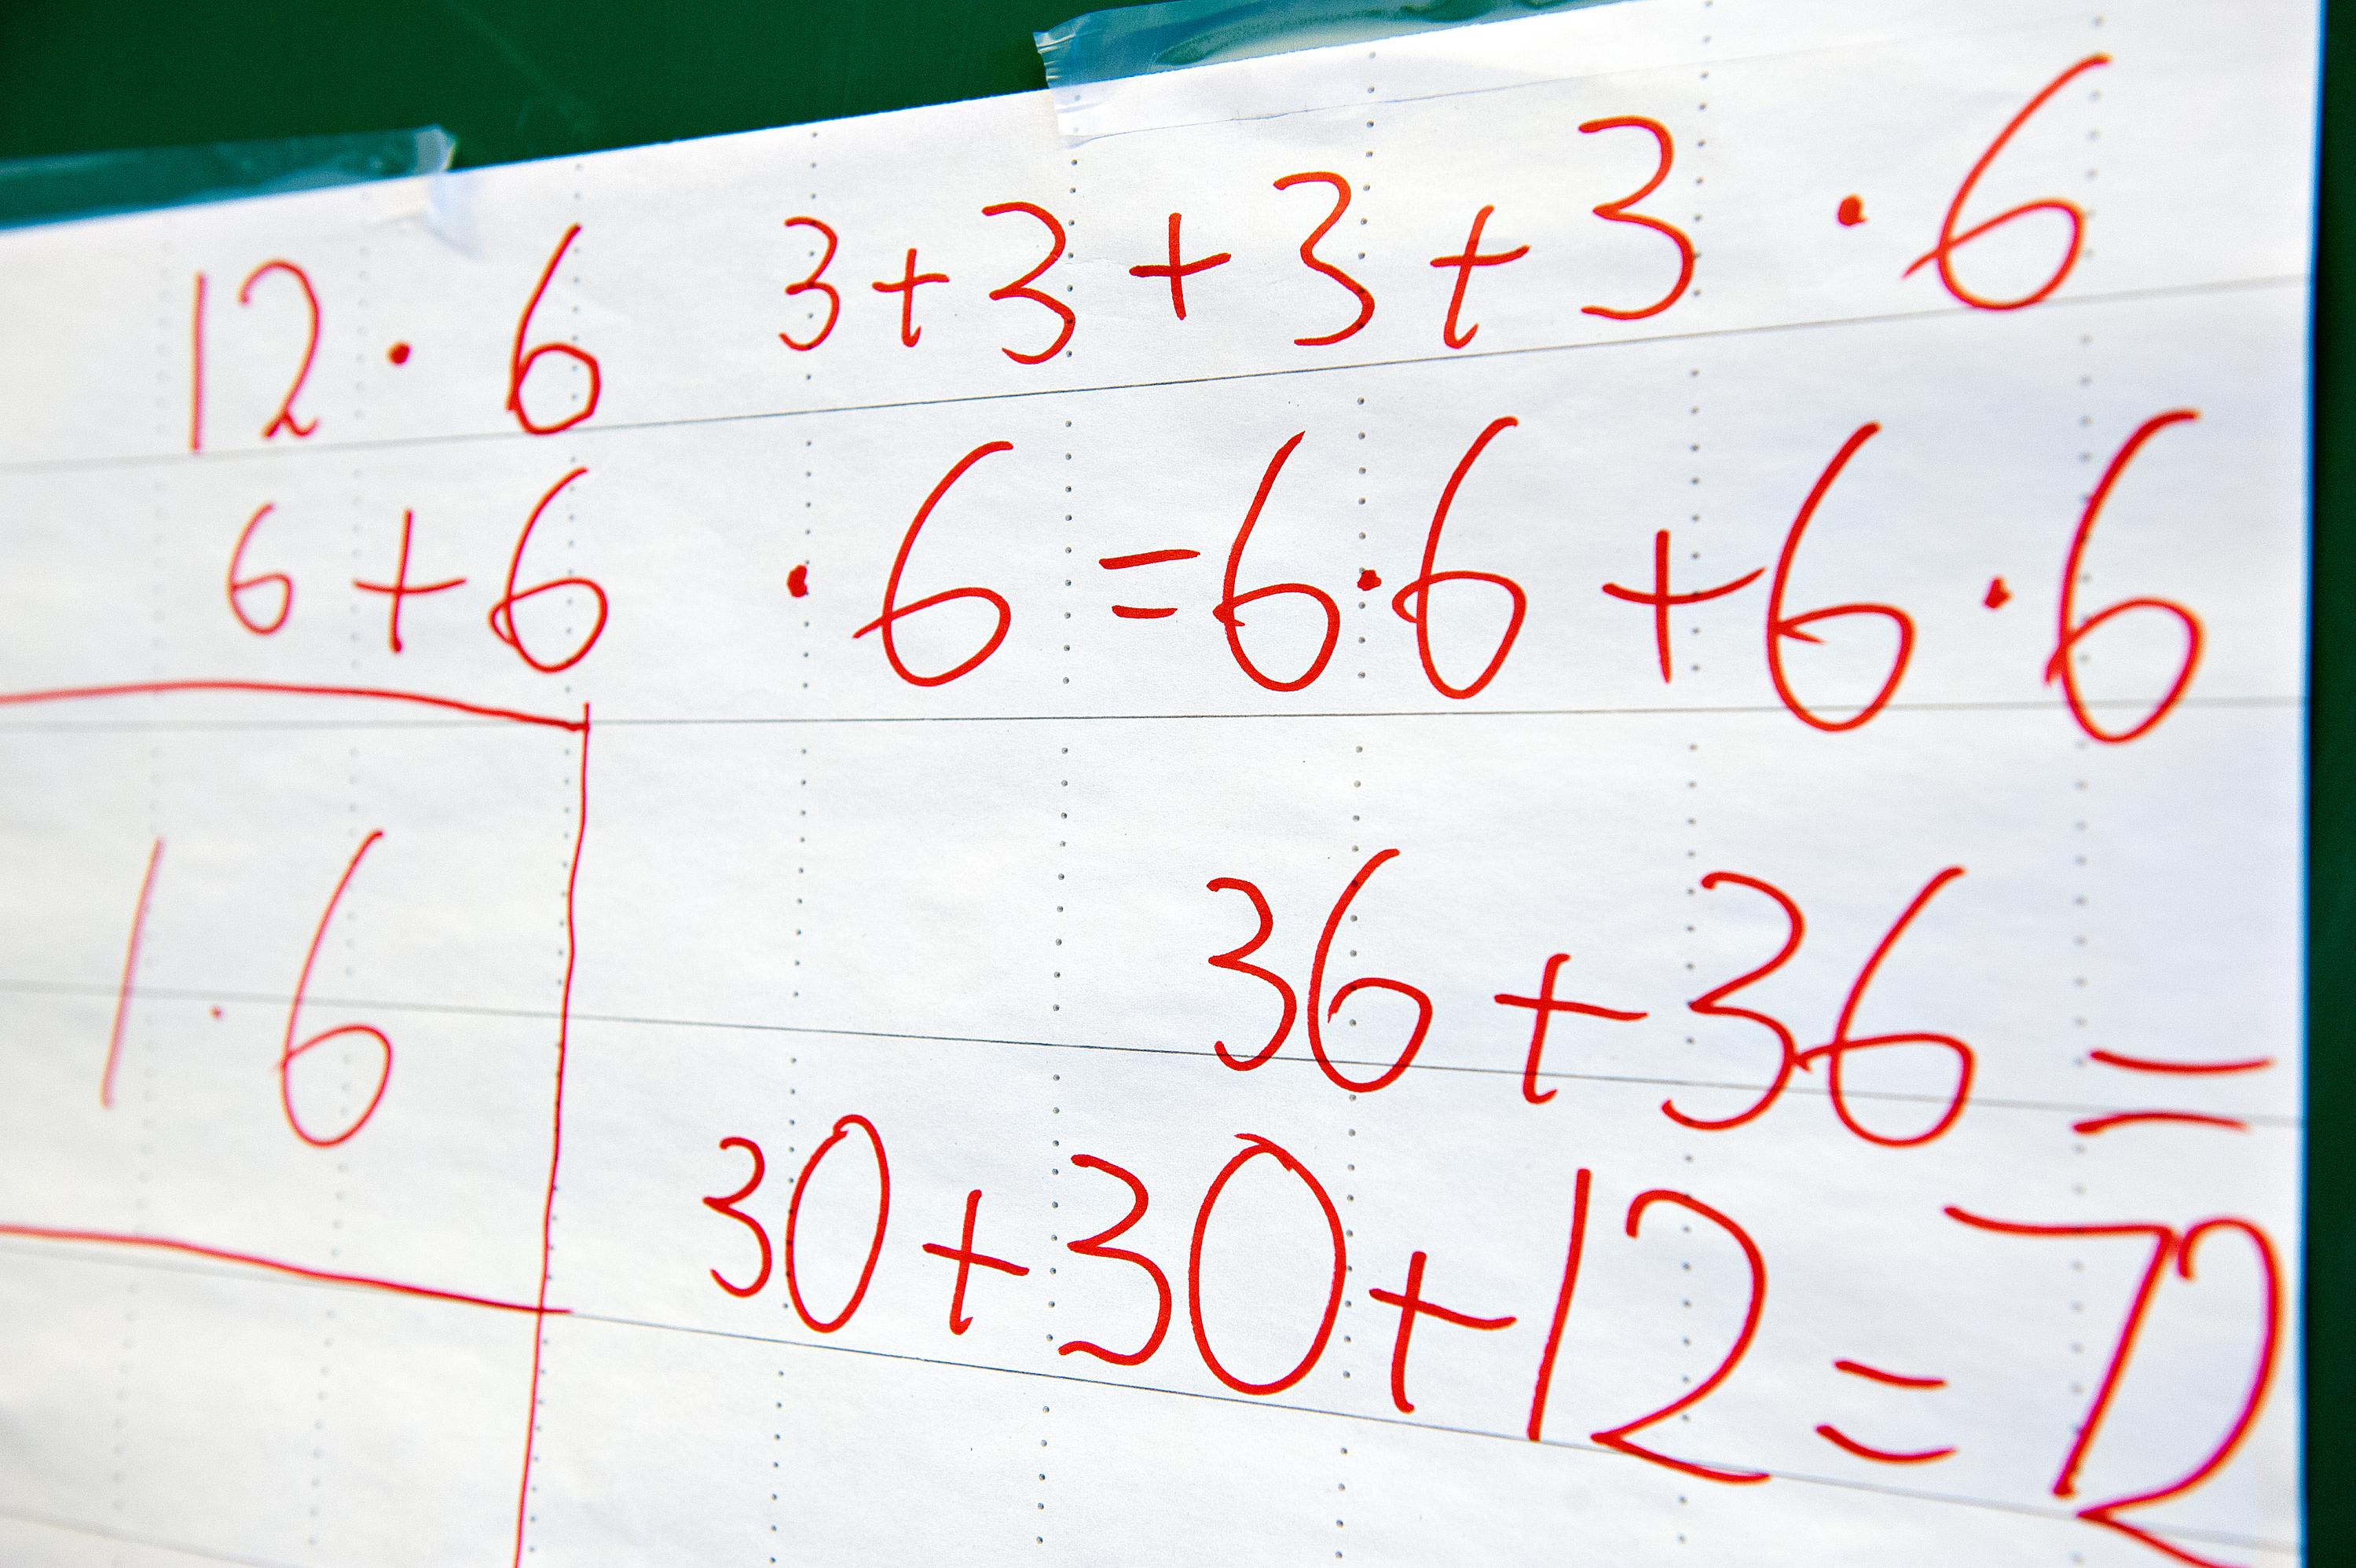 12 · 6 3+3+3+3 · 6
6+6 · 6 = 6·6 + 6·6
1 · 6 36 + 36 =
30+30+12 = 72